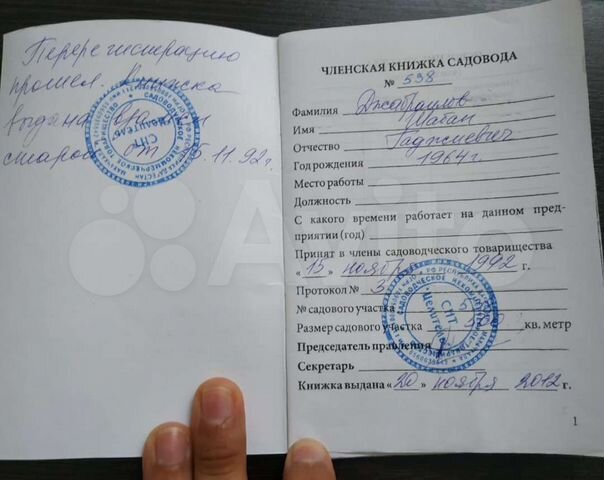 Перерегистрацию
прошел. Книжка
выдана взамен
старой от 15.11.92г.
ЧЛЕНСКАЯ КНИЖКА САДОВОДА
№ 538
Фамилия Джабраилов
Имя
Отчество Гаджиевич
Год рождения 1964г
Место работы
Должность
С какого времени работает на данном пред-
приятии (год)
Принят в члены садоводческого товарищества
«15» ноября 1992 г.
Протокол № 3
№ садового участка
Размер садового участка 500 кв. метр
Председатель правления
Секретарь
Книжка выдана «20» ноября 2012 г.
1
СНТ
Целитель
Avito